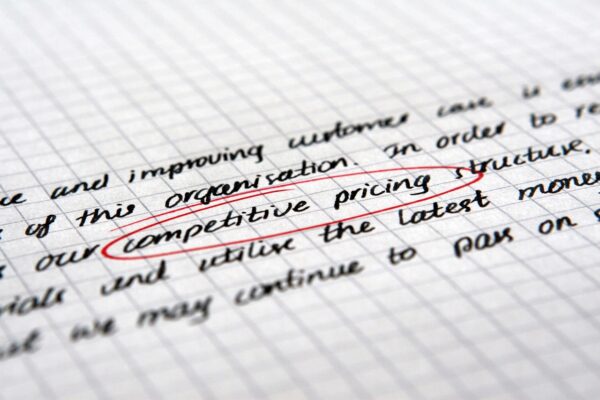 and improving customer care is
of this organisation. In order to
our competitive pricing structure,
and utilise the latest money
we may continue to pass on